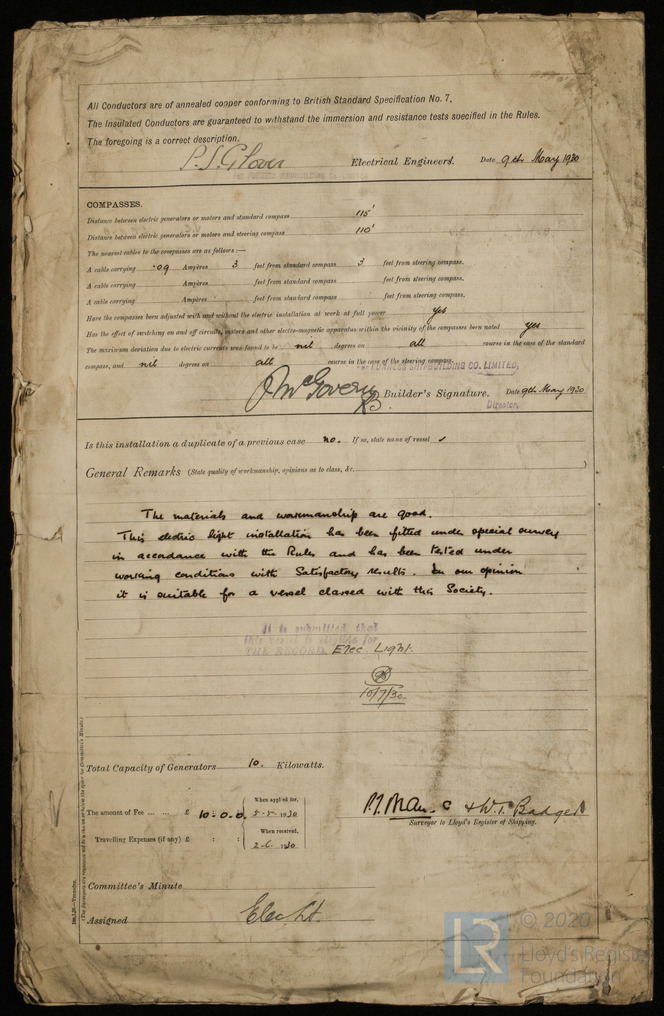 All Conductors are of annealed copper conforming to British Standard Specification No. 7.
The Insulated Conductors are guaranteed to withstand the immersion and resistance tests specified in the Rules.
The foregoing is a correct description.
P.S. Glover Electrical Engineers. Date 9th May 1930
COMPASSES.
Distance between electric generators or motors and standard compass 115'
Distance between electric generators or motors and steering compass 110'
The nearest cables to the compasses are as follows:—
A cable carrying .09 Ampères 3 feet from standard compass 3 feet from steering compass.
A cable carrying Ampères feet from standard compass feet from steering compass.
A cable carrying Ampères feet from standard compass feet from steering compass.
Have the compasses been adjusted with and without the electric installation at work at full power yes
Has the effect of switching on and off circuits, motors and other electro-magnetic apparatus within the vicinity of the compasses been noted yes
The maximum deviation due to electric currents was found to be nil degrees on all course in the case of the standard
compass, and nil degrees on all course in the case of the steering compass.
FURNESS SHIPBUILDING CO. LIMITED,
J McGovern Builder's Signature. Date 9th May 1930
Director.
Is this installation a duplicate of a previous case no. If so, state name of vessel
General Remarks (State quality of workmanship, opinions as to class, &c.
The materials and workmanship are good.
This electric light installation has been fitted under special survey
in accordance with the Rules and has been tested under
working conditions with Satisfactory results. In our opinion
it is suitable for a vessel classed with this Society.
It is submitted that
this vessel is eligible for
THE RECORD. Elec. Light.
10/7/30
Total Capacity of Generators 10. Kilowatts.
The amount of Fee ... ... £ 10:0.0. When applied for, 5-5-1930
Travelling Expenses (if any) £ : : When received, 2-6.1930
& W.T. Badger
Surveyor to Lloyd's Register of Shipping.
Committee's Minute
Assigned Elec Lt.
LR © 2020
Lloyd's Register
Foundation